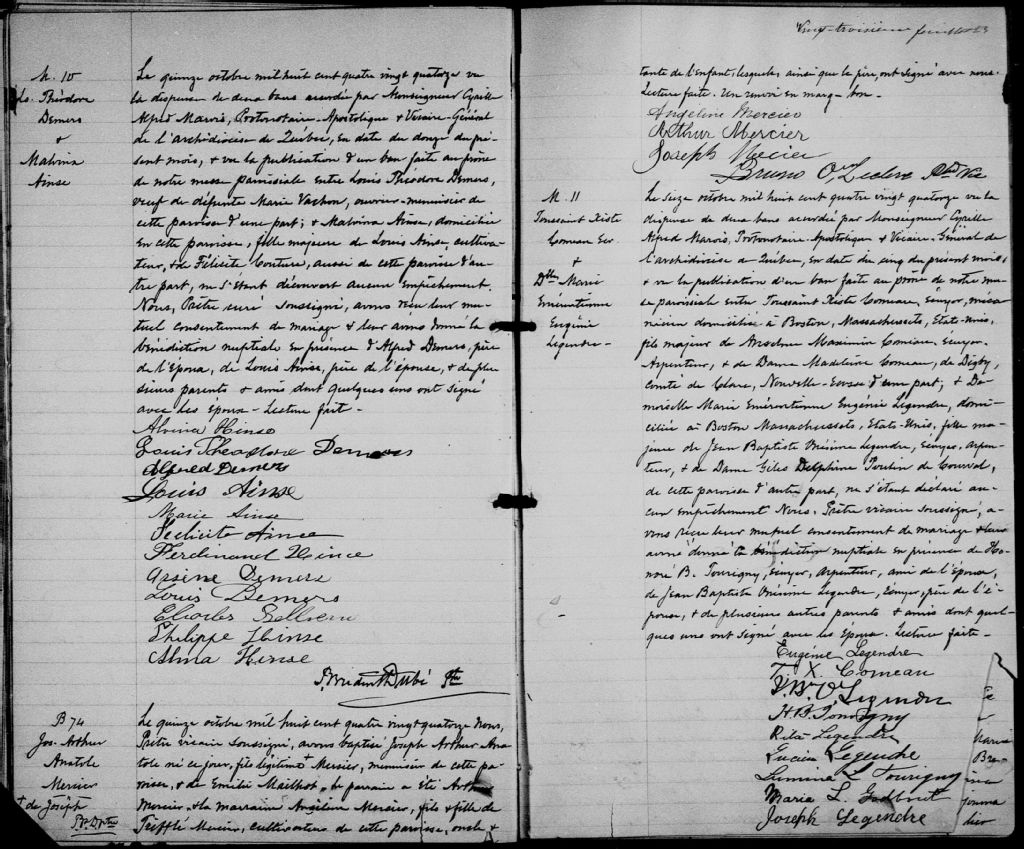 M. 10
Ls. Théodore
Demers
+
Malvina
Ainse
Le quinze octobre mil huit cent quatre vingt quatorze vu
la dispense de deux bans accordée par Monseigneur Cyrille
Alfred Marois, Protonotaire-Apostolique & Vicaire-Général
de l'archidiocèse de Québec, en date du douze du pré-
sent mois, & vu la publication d'un ban faite au prône
de notre messe paroissiale entre Louis Théodore Demers,
veuf de défunte Marie Vachon, ouvrier-menuisier de
cette paroisse d'une part; & Malvina Ainse, domiciliée
en cette paroisse, fille majeure de Louis Ainse, cultiva-
teur, & de Félicité Couture, aussi de cette paroisse d'au-
tre part, ne s'étant découvert aucun empêchement.
Nous, Prêtre curé soussigné, avons reçu leur mu-
tuel consentement de mariage & leur avons donné la
bénédiction nuptiale en présence d'Alfred Demers, père
de l'époux, de Louis Ainse, père de l'épouse, & de plu-
sieurs parents & amis dont quelques uns ont signé
avec les époux - Lecture faite -
Alvina Hinse
Louis Theodore Demers
Alfred Demers
Louis Ainse
Marie Ainse
Felicite Ainse
Ferdinand Hince
Arsène Demers
Louis Demers
Charles
Philippe Hinse
Alma Hinse
Dubé Ptre
B 74
Jos. Arthur
Anatole
Mercier
+ de Joseph
Le quinze octobre mil huit cent quatre vingt quatorze Nous,
Prêtre vicaire soussigné, avons baptisé Joseph Arthur Ana-
tole né ce jour, fils légitime + Mercier, menuisier de cette pa-
roisse, & de Emilie Mailhot, le parrain a été Arthur
Mercier, & la marraine Angéline Mercier, fils & fille de
Mercier, cultivateur de cette paroisse, oncle &
Vingt-troisième feuillet 23
tante de l'enfant, lesquels, ainsi que le père, ont signé avec nous.
Lecture faite. Un renvoi en marge bon.
Angéline Mercier
Arthur Mercier
Joseph Mercier
Bruno O. Leclerc Ptre Vic
M. 11
Toussaint Xiste
Comeau Ecr.
+
Dlle Marie
Emérentienne
Eugénie
Legendre
Le seize octobre mil huit cent quatre vingt quatorze vu la
dispense de deux bans accordée par Monseigneur Cyrille
Alfred Marois, Protonotaire-Apostolique & Vicaire-Général de
l'archidiocèse de Québec, en date du cinq du présent mois,
& vu la publication d'un ban faite au prône de notre mes-
se paroissiale entre Toussaint Xiste Comeau, Ecuyer, méca-
nicien domicilié à Boston, Massachussets, Etats-Unis,
fils majeur de Anselme Maximin Comeau, Ecuyer-
Arpenteur, & de Dame Madeleine Comeau, de Digby,
comté de Clare, Nouvelle-Ecosse d'une part; & De-
moiselle Marie Emérentienne Eugénie Legendre, domi-
ciliée à Boston Massachussets, Etats-Unis, fille ma-
jeure de Jean Baptiste Onésime Legendre, Ecuyer, Arpen-
teur, & de Dame Giles Delphine Poulin de Courval,
de cette paroisse d'autre part, ne s'étant déclaré au-
cun empêchement Nous. Prêtre vicaire soussigné, a-
vons reçu leur mutuel consentement de mariage & leur
avons donné la bénédiction nuptiale en présence de Ho-
noré B. Tourigny, Ecuyer, Arpenteur, ami de l'époux,
de Jean Baptiste Onésime Legendre, Ecuyer, père de l'é-
pouse, & de plusieurs autres parents & amis dont quel-
ques uns ont signé avec les époux. Lecture faite -
Eugénie Legendre
T. X. Comeau
J. Bte O. Legendre
H. B. Tourigny
Rita Legendre
Lucien Legendre
L. Tourigny
Maria L. Godbout
Joseph Legendre